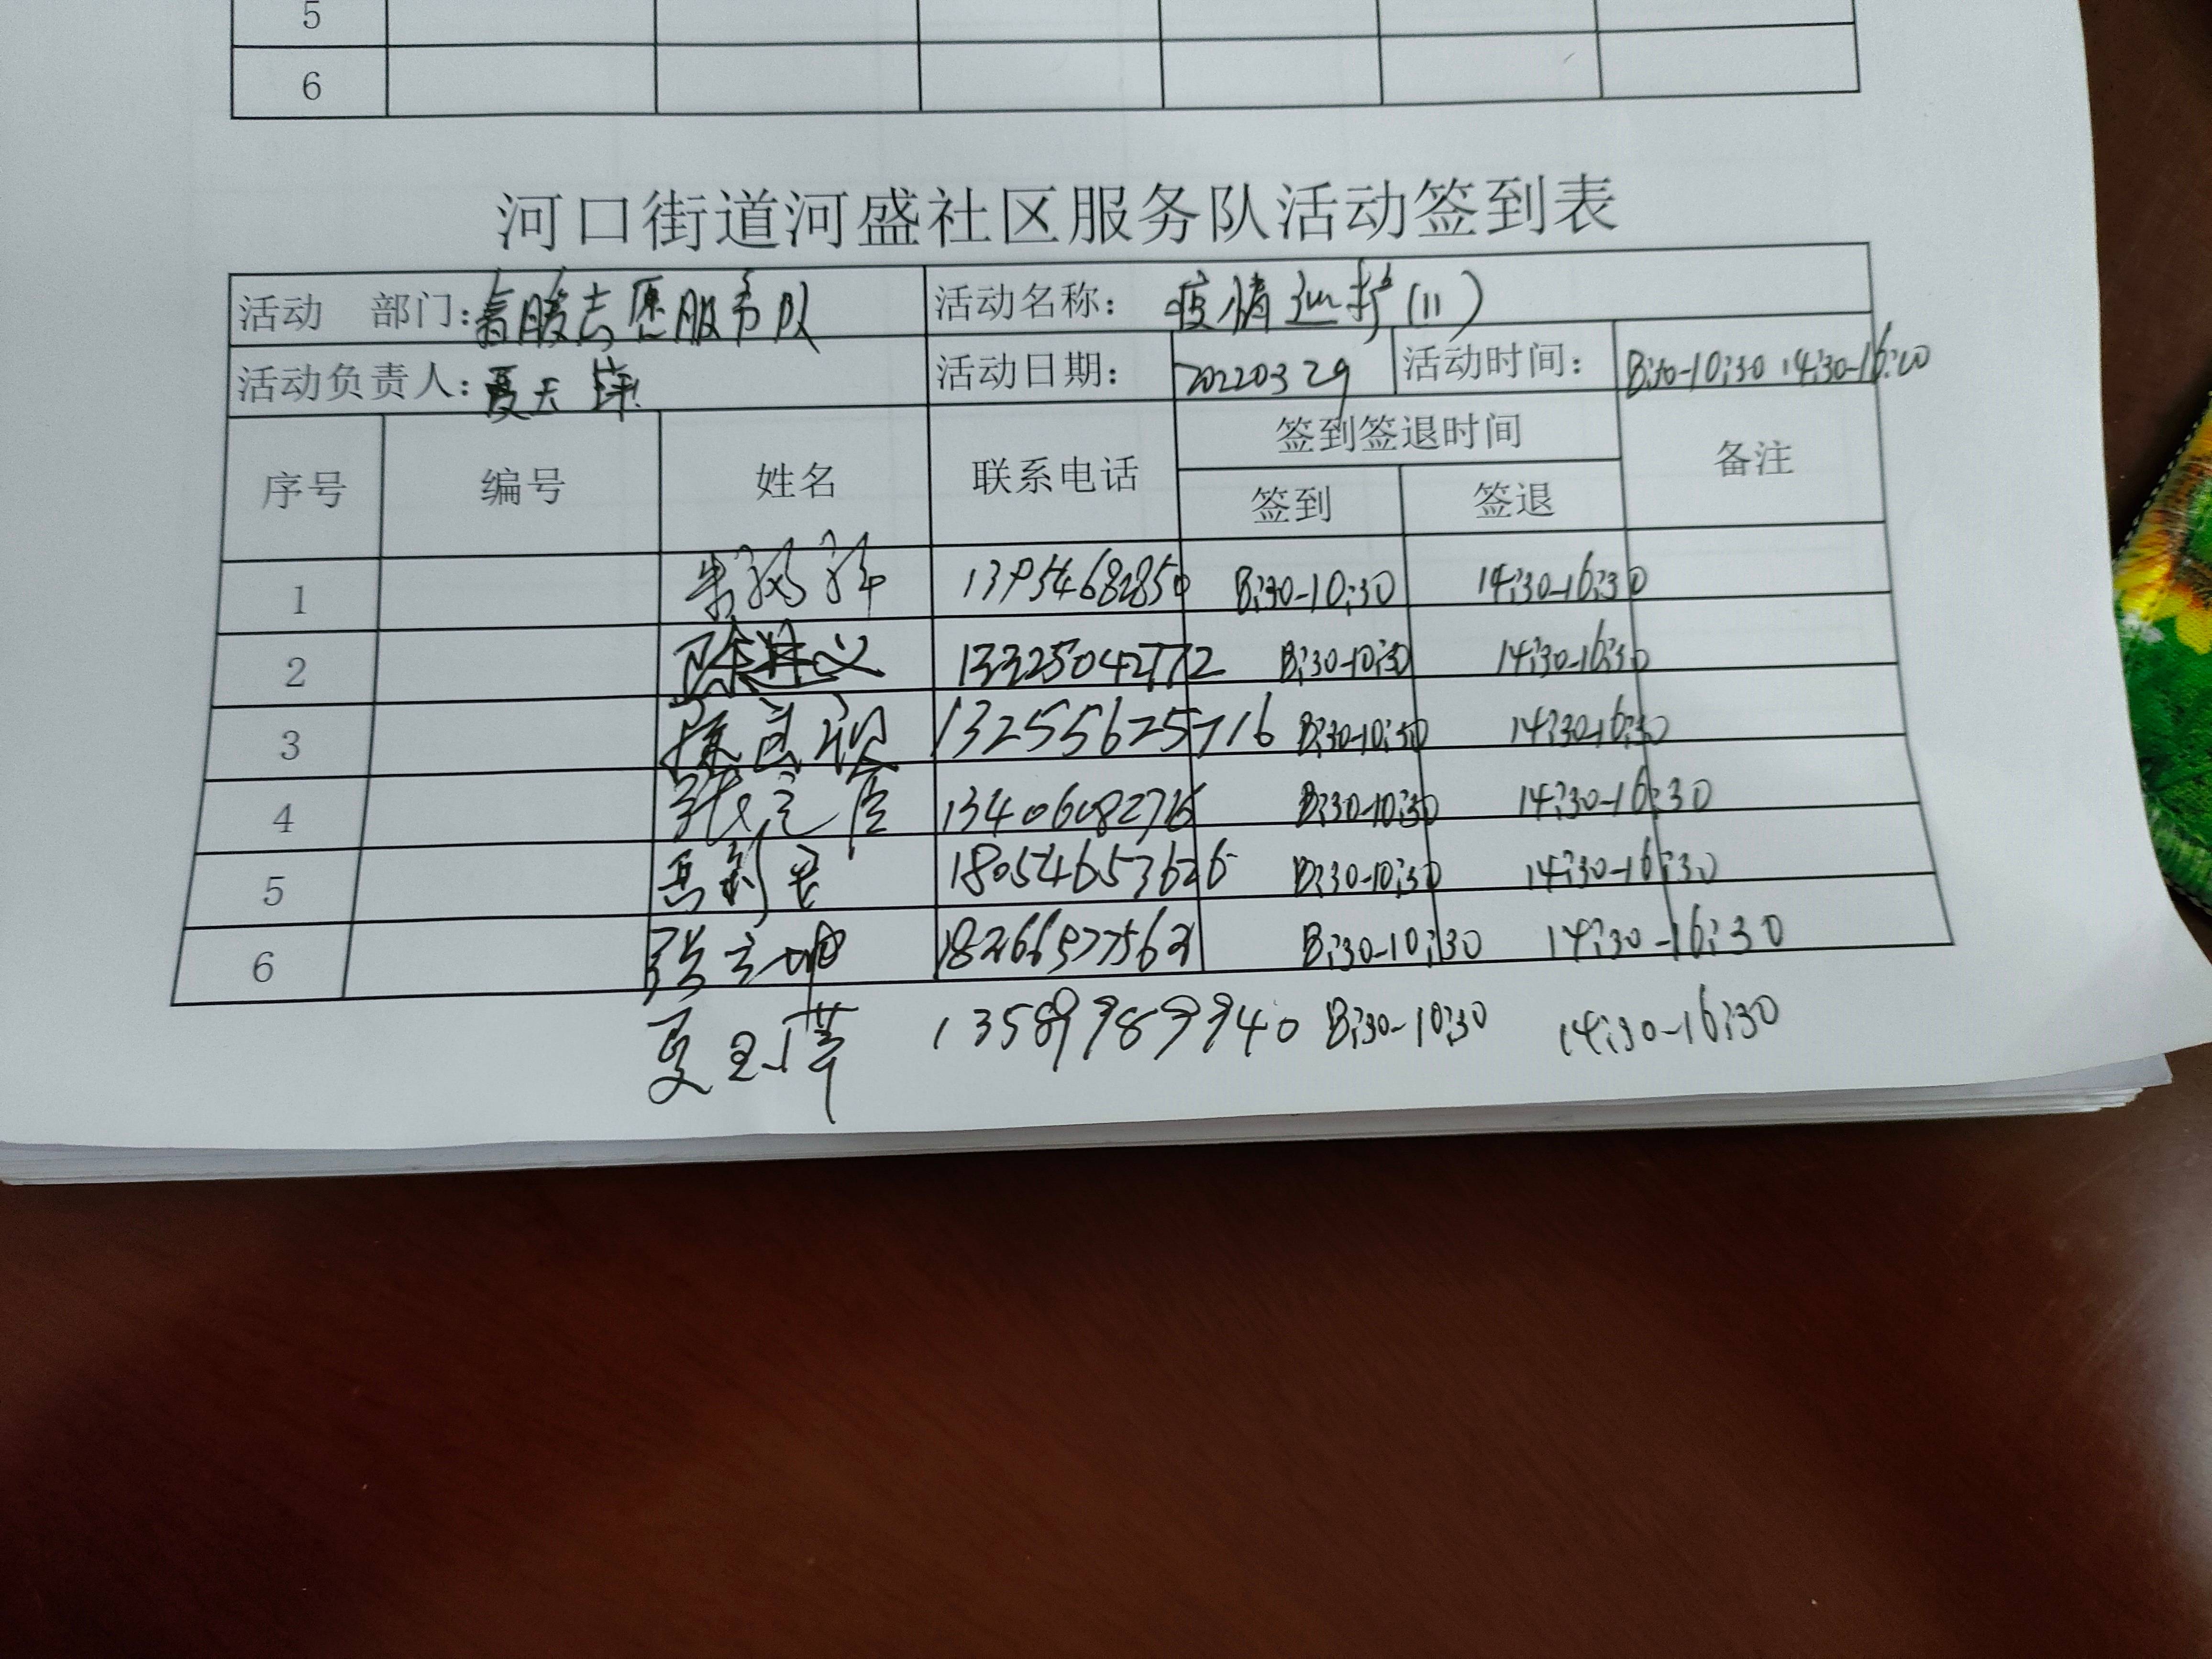 5
6
河口街道河盛社区服务队活动签到表
活动 部门：春暖志愿服务队 活动名称： 疫情巡护(11)
活动负责人：夏天 活动日期： 20220329 活动时间： 8:30-10:30 14:30-16:30
序号 编号 姓名 联系电话 签到签退时间 备注
签到 签退
1 朱 13954682850 8:30-10:30 14:30-16:30
2 陈进义 13325042772 8:30-10:30 14:30-16:30
3 13255625716 8:30-10:30 14:30-16:30
4 张 8:30-10:30 14:30-16:30
5 18054653626 8:30-10:30 14:30-16:30
6 张 坤 8:30-10:30 14:30-16:30
夏 萍 13589989940 8:30-10:30 14:30-16:30